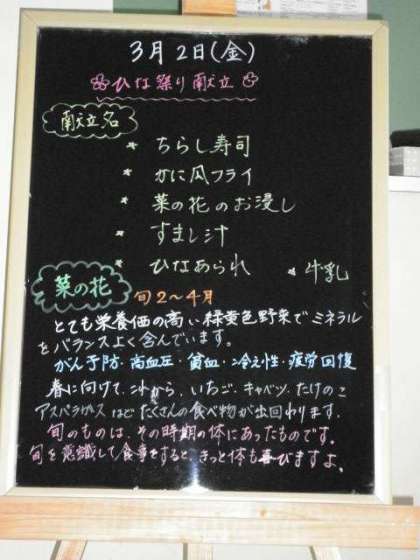 3月2日(金)
ひな祭り献立
献立名
* ちらし寿司
* かに爪フライ
* 菜の花のお浸し
* すまし汁
* ひなあられ * 牛乳
菜の花 旬2〜4月
とても栄養価の高い緑黄色野菜でミネラル
をバランスよく含んでいます。
がん予防・高血圧・貧血・冷え性・疲労回復
春に向けて、これから、いちご、キャベツ、たけのこ
アスパラガスなどたくさんの食べ物が出回わります。
旬のものは、その時期の体にあったものです。
旬を意識して食事をすると、きっと体も喜びますよ。